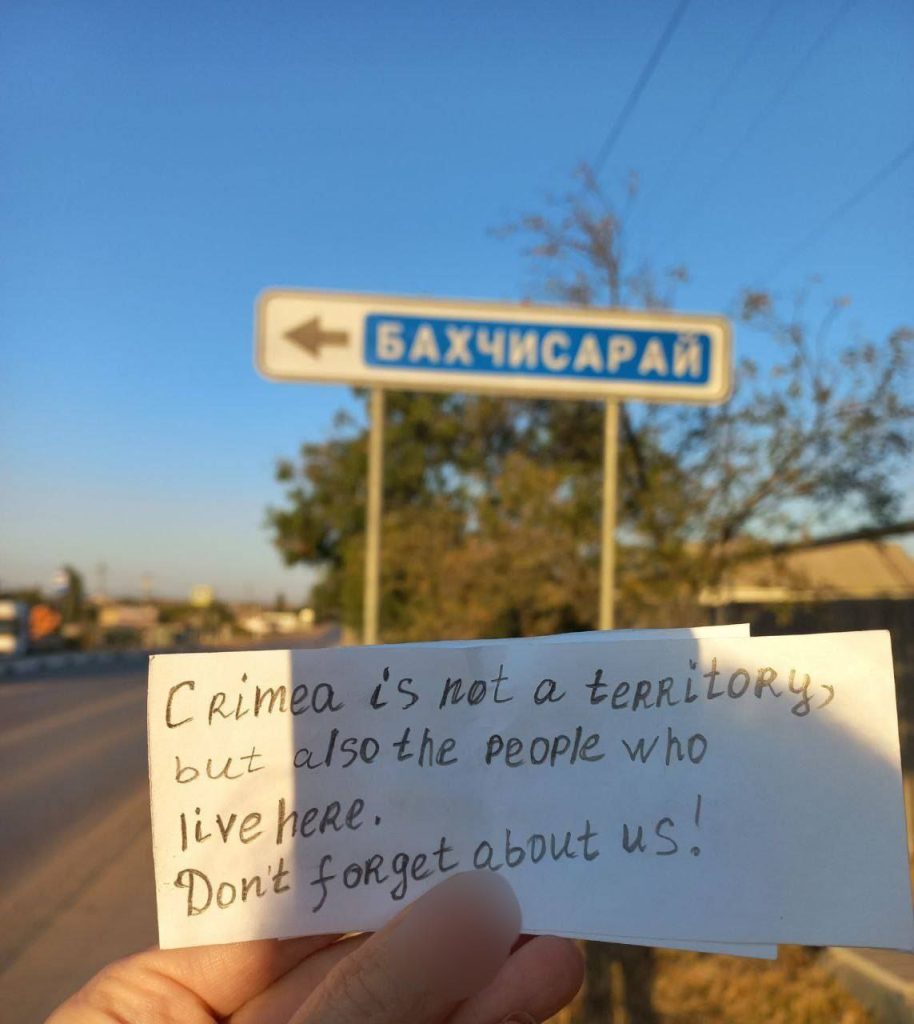 БАХЧИСАРАЙ
Crimea is not a territory,
but also the people who
live here.
Don't forget about us!